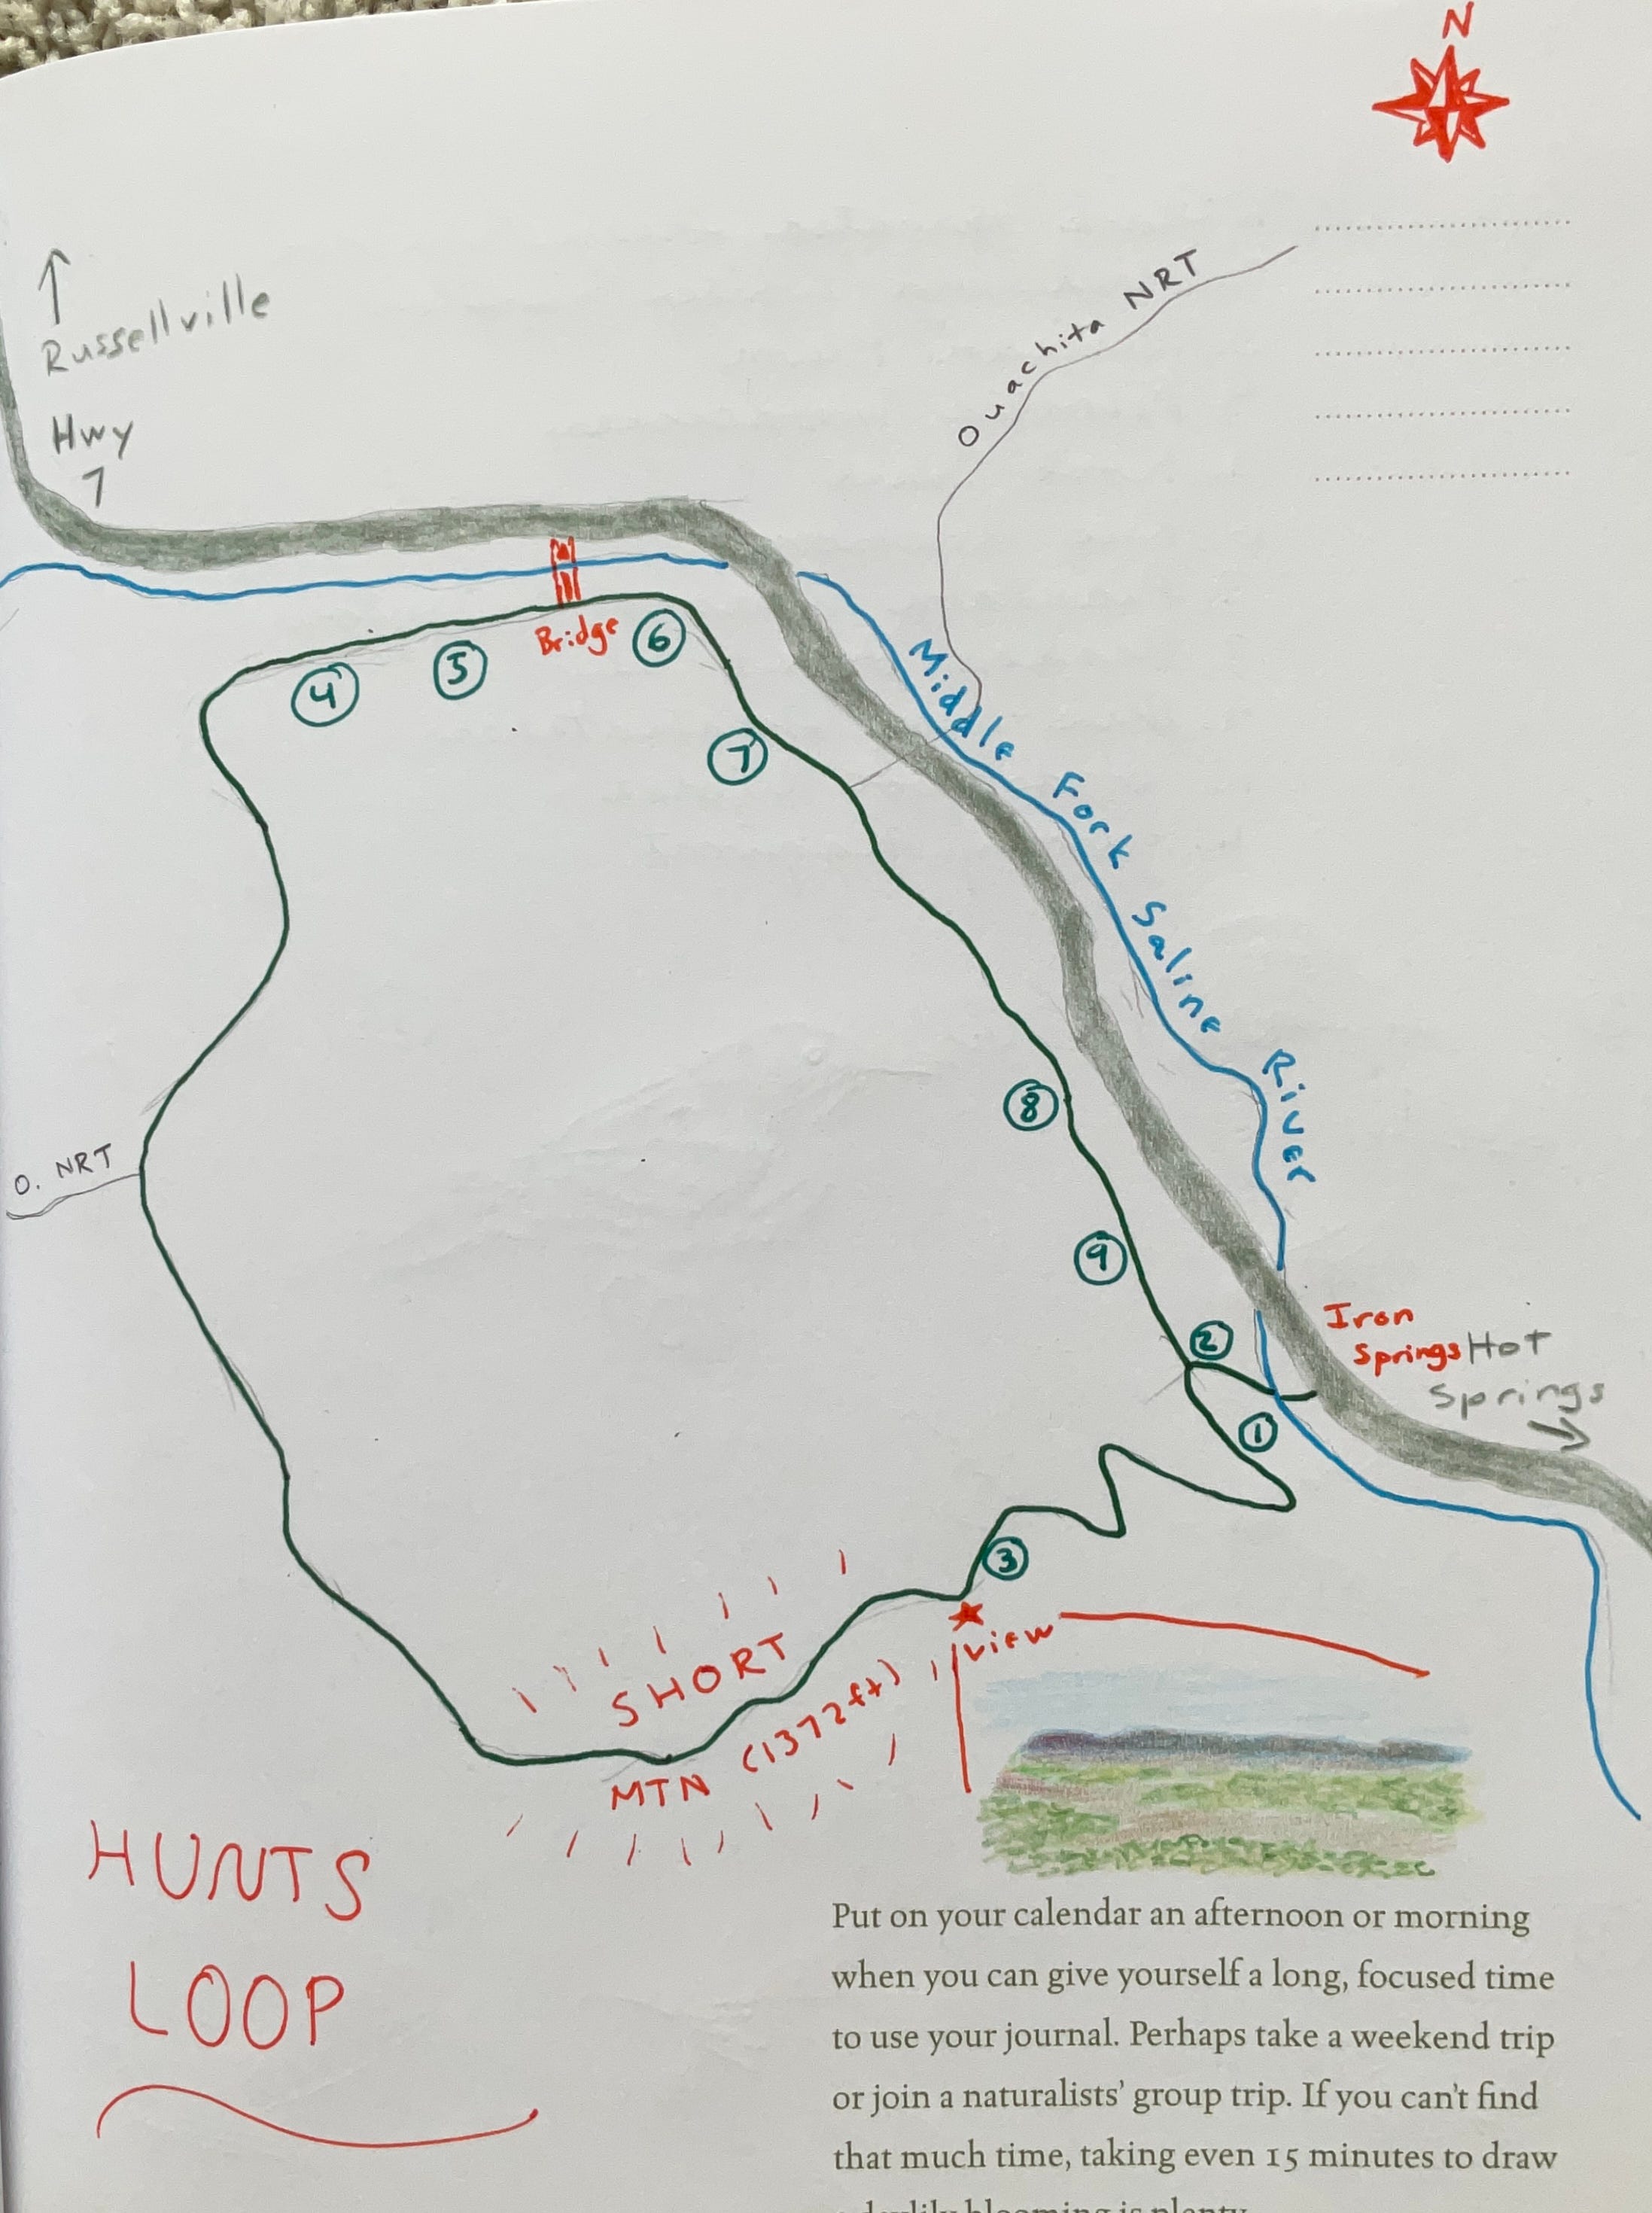 N
Ouachita NRT
Russellville
Hwy
7
Bridge
4
5
6
7
Middle Fork Saline River
8
O. NRT
9
2
Iron
Springs
Hot
Springs
1
3
view
SHORT
MTN (1372ft)
HUNTS
LOOP
Put on your calendar an afternoon or morning
when you can give yourself a long, focused time
to use your journal. Perhaps take a weekend trip
or join a naturalists’ group trip. If you can’t find
that much time, taking even 15 minutes to draw
a daylily blooming is plenty.